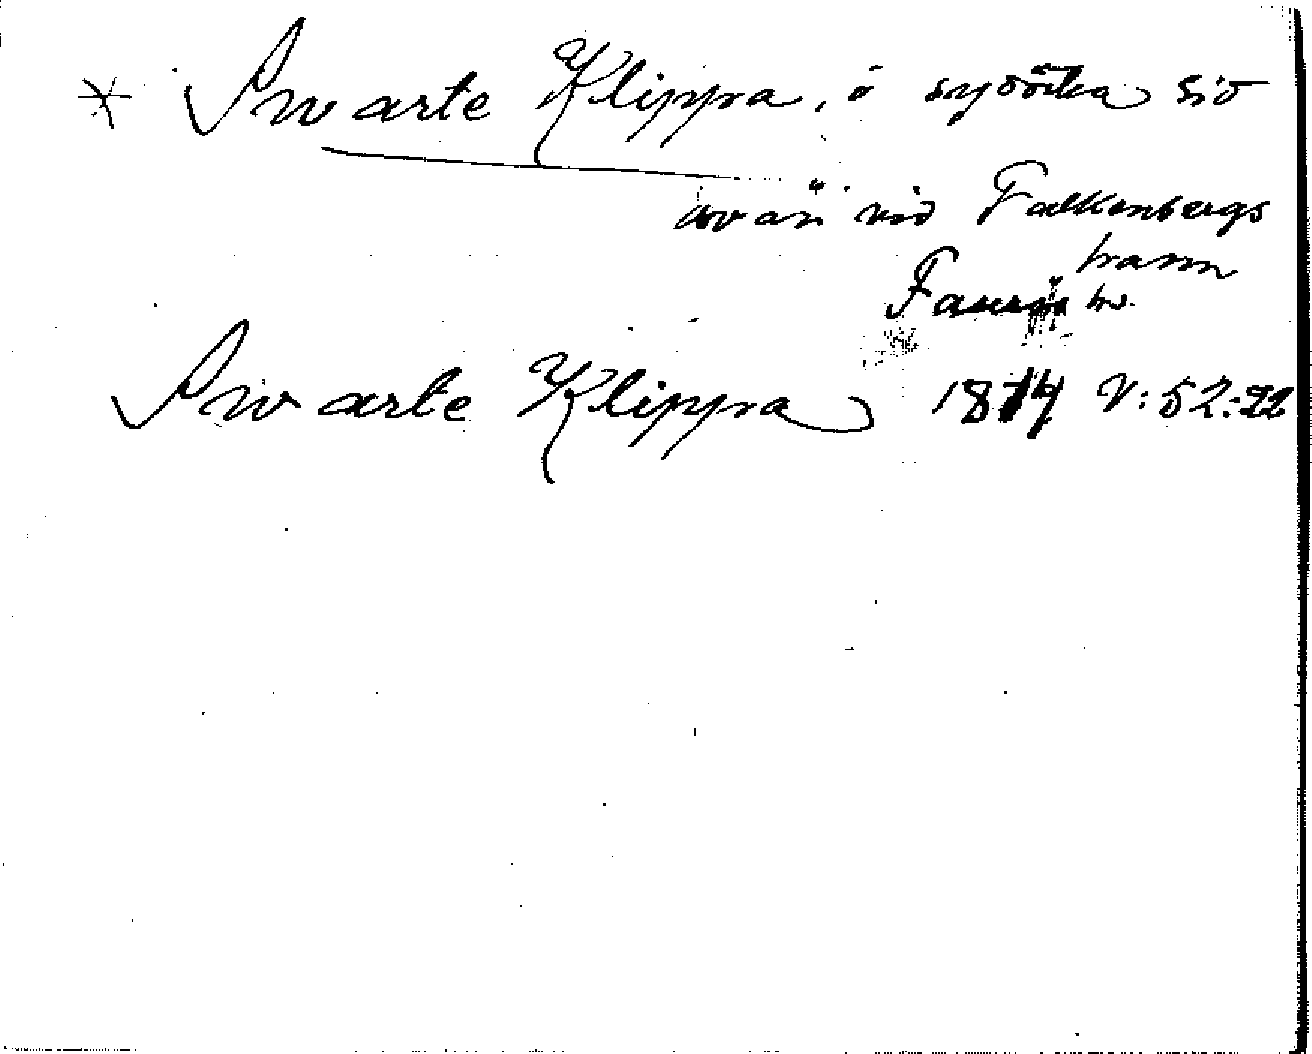 * Swarte Klippa, ö sydöstra sid
av ån vid Falkenbergs
hamn
Faurås hd.
Swarte Klippa 1814 V:52:22